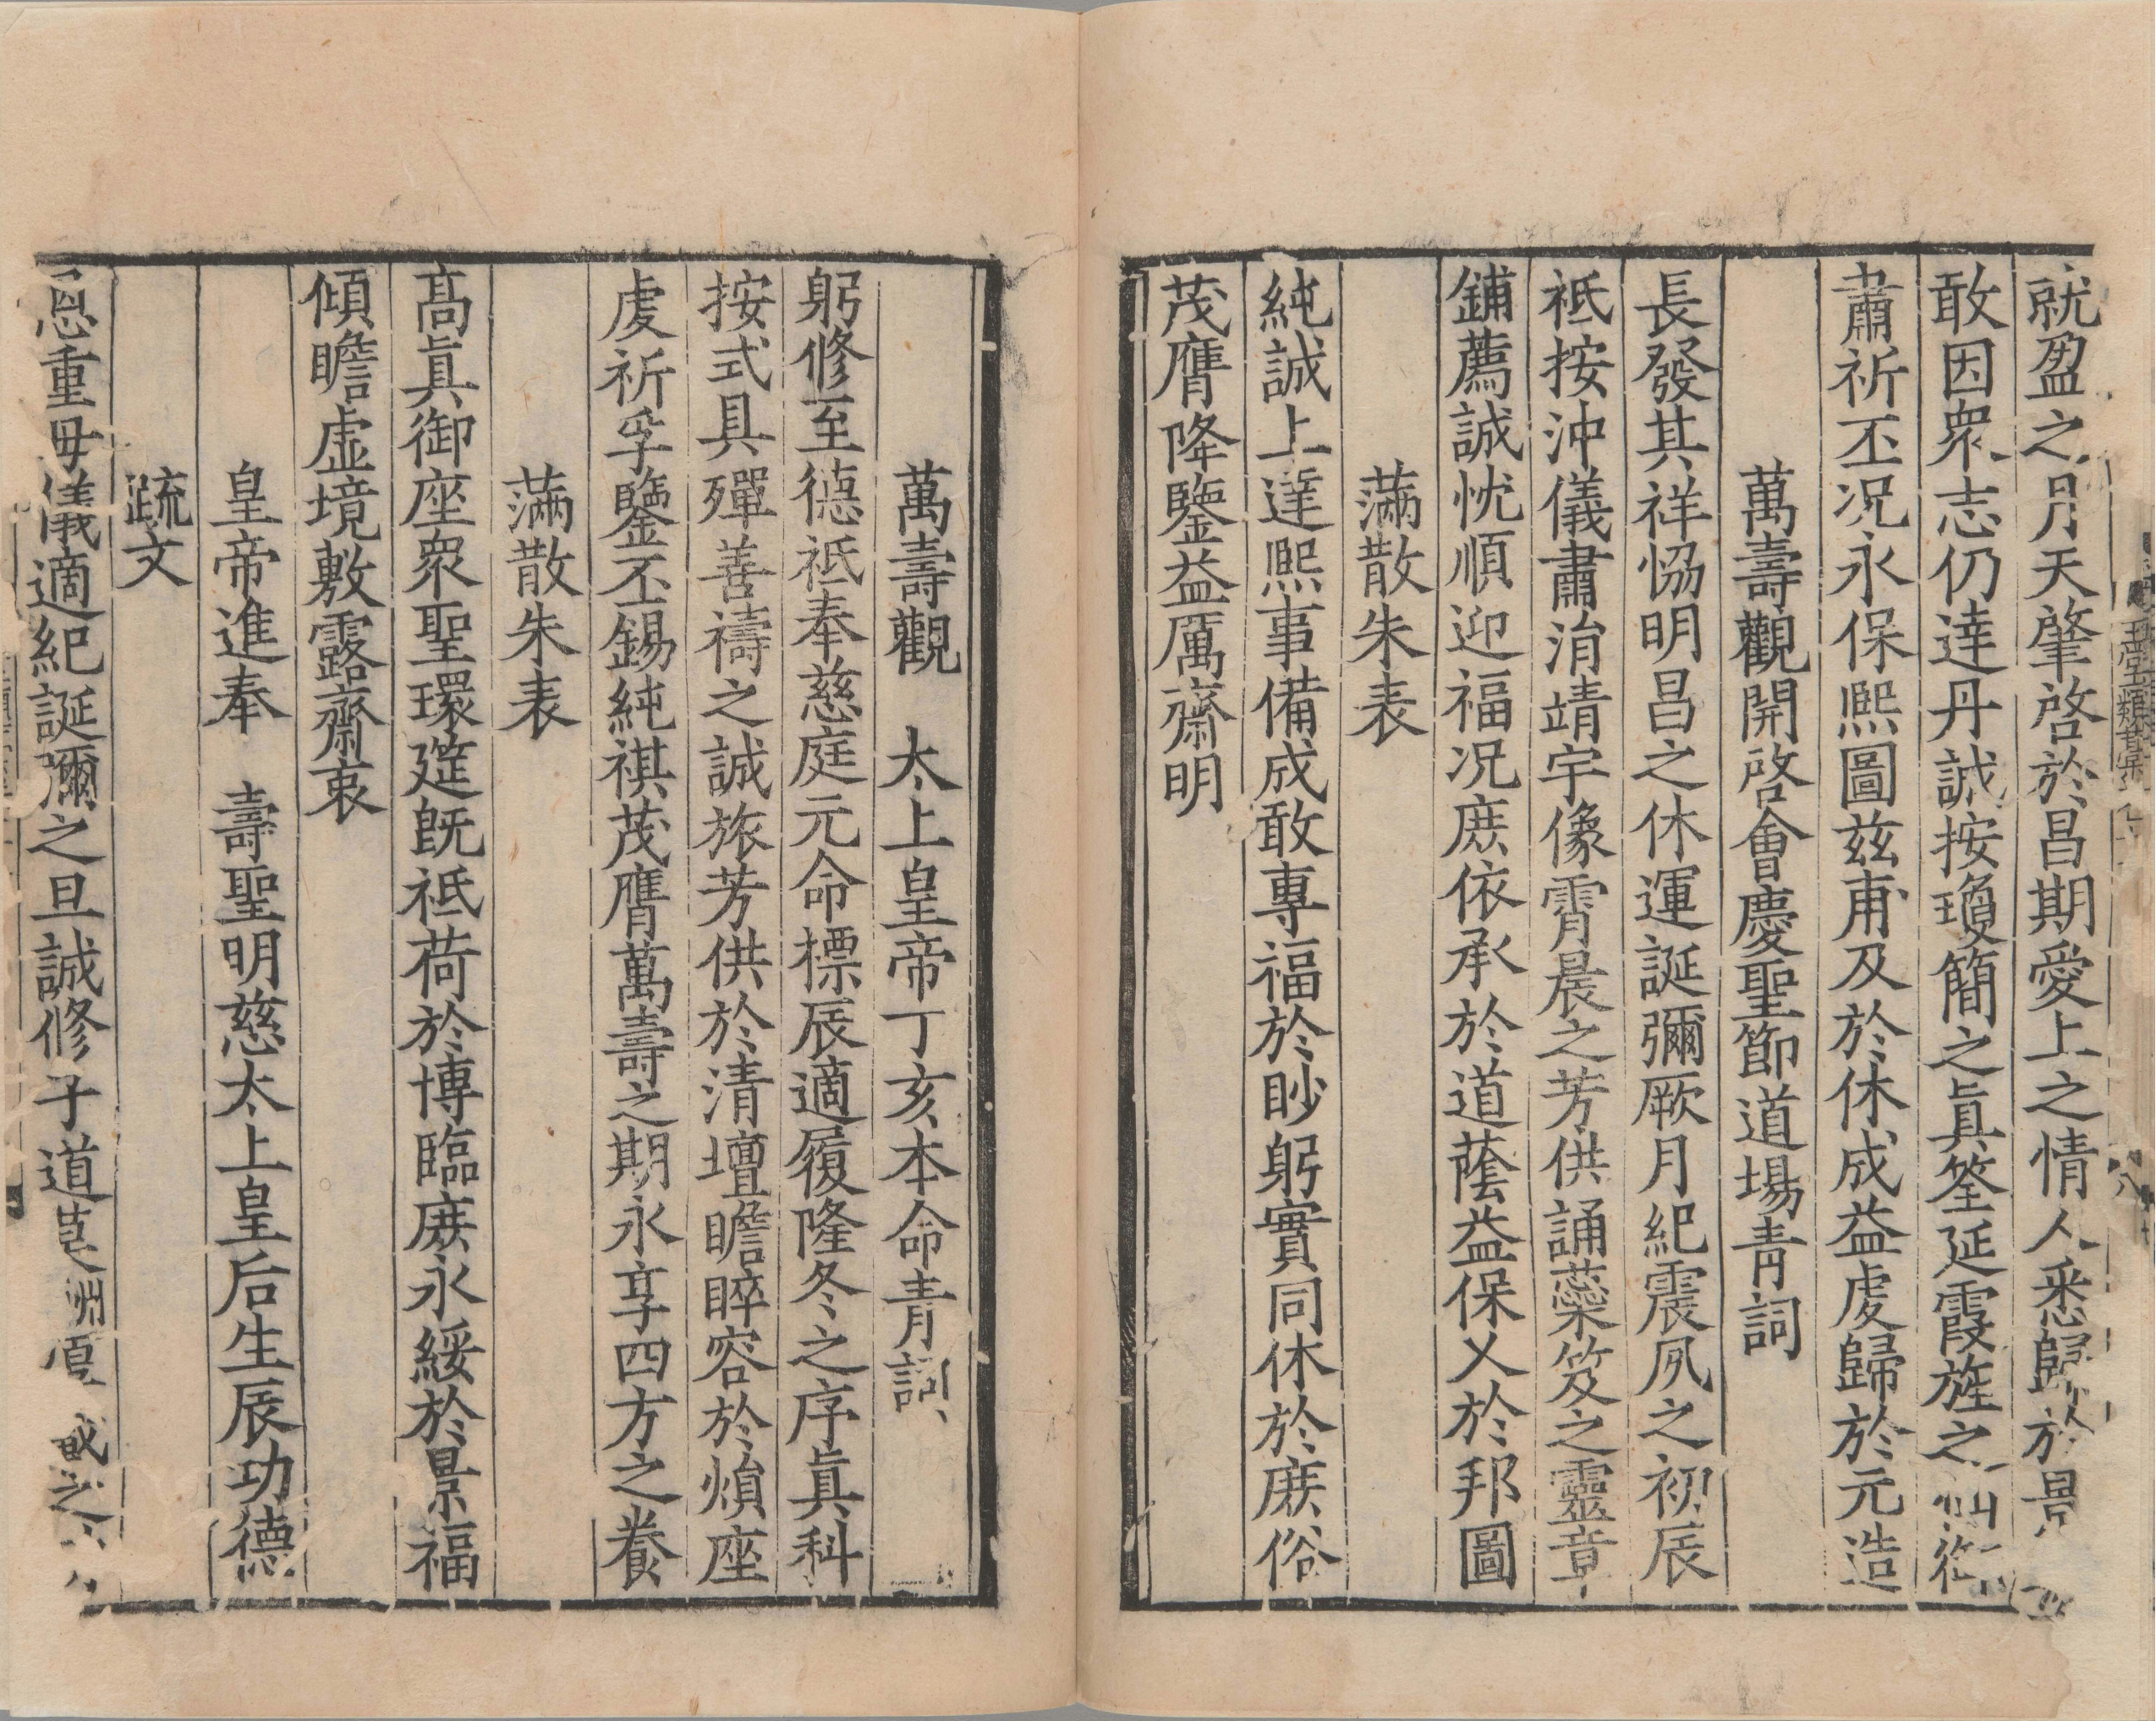 就盈之月天肇啓於昌期愛上之情人悉歸於景
敢因衆志仍達丹誠按瓊簡之眞筌延霞旌之仙
肅祈丕况永保熈圖兹甫及於休成益䖍歸於元造
萬壽觀開啓會慶聖節道場青詞
長發其祥恊明昌之休運誕彌厥月紀震夙之初辰
祗按沖儀肅涓靖宇像霄晨之芳供誦蘂笈之靈章
鋪薦誠忱順迎福况庶依承於道蔭益保乂於邦圖
滿散朱表
純誠上達熈事備成敢專福於眇躬實同休於庶俗
茂膺降鑒益厲齋明
萬壽觀 太上皇帝丁亥本命青詞
躬修至德祗奉慈庭元命標辰適履隆冬之序眞科
按式具殫善禱之誠旅芳供於清壇瞻睟容於煩座
䖍祈孚鑒丕錫純祺茂膺萬壽之期永享四方之養
滿散朱表
髙眞御座衆聖環筵旣祗荷於博臨庶永綏於景福
傾瞻虚境敷露齋衷
皇帝進奉 壽聖明慈太上皇后生辰功德
疏文
恩重母儀適紀誕彌之旦誠修子道 淵 之
玉堂類藁
八